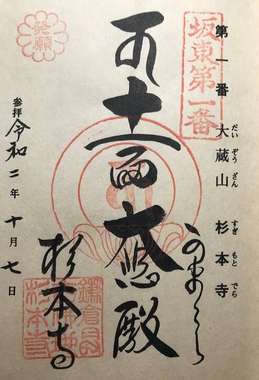 第一番 大蔵山 杉本寺
だいぞうざん すぎもとでら
坂東第一番
発願
十一面大悲殿
かまくら
杉本寺
参拝 令和二年 十月七日